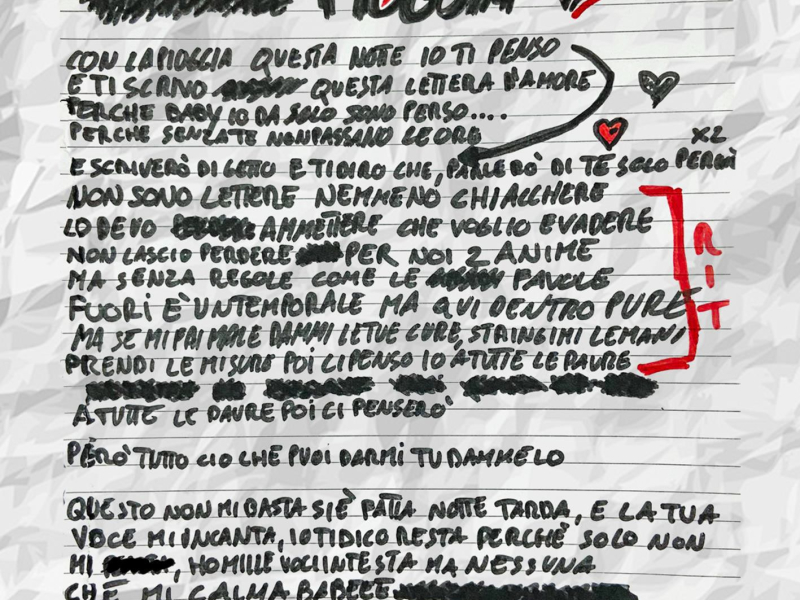 CON LA PIOGGIA QUESTA NOTTE IO TI PENSO
E TI SCRIVO QUESTA LETTERA D'AMORE
PERCHE BABY IO DA SOLO SONO PERSO....
PERCHE SENZA TE NON PASSANO LE ORE
X2
E SCRIVERÒ DI GETTO E TI DIRO CHE, PARLERÒ DI TE SOLO PERCHÈ
NON SONO LETTERE NEMMENO CHIACCHERE
LO DEVO AMMETTERE CHE VOGLIO EVADERE
NON LASCIO PERDERE PER NOI 2 ANIME
MA SENZA REGOLE COME LE FAVOLE
FUORI È UN TEMPORALE MA QUI DENTRO PURE
MA SE MI FAI MALE DAMMI LE TUE CURE, STRINGIMI LE MANI
PRENDI LE MISURE POI CI PENSO IO A TUTTE LE PAURE
RIT
A TUTTE LE PAURE POI CI PENSERÒ
PERÒ TUTTO CIO CHE PUOI DARMI TU DAMMELO
QUESTO NON MI BASTA SI È FATTA NOTTE TARDA, E LA TUA
VOCE MI INCANTA, IO TI DICO RESTA PERCHÈ SOLO NON
MI , HO MILLE VOCI IN TESTA MA NESSUNA
CHE MI CALMA